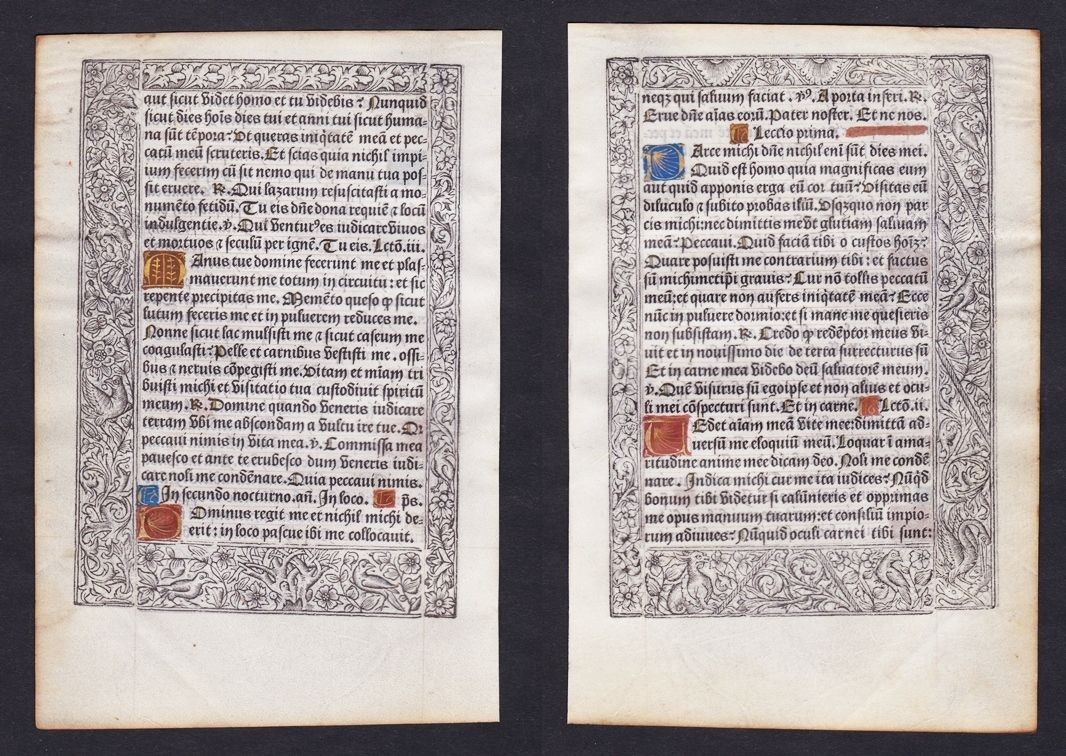 aut sicut videt homo et tu videbis? Nunquid
sicut dies hoīs dies tui et anni tui sicut huma-
na sūt tēpora: Ut queras iniq̄tatē meā et pec-
catū meū scruteris. Et scias quia nichil impi-
ium fecerim cū sit nemo qui de manu tua pos-
sit eruere. ℟. Qui lazarum resuscitasti a mo-
numēto fetidū. Tu eis dn̄e dona requiē ⁊ locū
indulgentie. ℣. Qui ventur⁹es iudicare vivos
et mortuos ⁊ seculū per ignē. Tu eis. Lctō. iii.
Anus tue domine fecerunt me et plas-
maverunt me totum in circuitu: et sic
repente precipitas me. Memēto queso ꝙ sicut
lutum feceris me et in puluerem reduces me.
Nonne sicut lac mulsisti me ⁊ sicut caseum me
coagulasti? Pelle et carnibus vestisti me. ossi-
bus ⁊ neruis cōpegisti me. Vitam et mīam tri
buisti michi et visitatio tua custodiuit spiritū
meum. ℟. Domine quando veneris iudicare
terram vbi me abscondam a vultu ire tue. Q
peccaui nimis in vita mea. ℣. Commissa mea
pauesco et ante te erubesco dum veneris iudi-
care noli me condēnare. Quia peccaui nimis.
In secundo nocturno. añ. In loco. p̄s.
D ominus regit me et nichil michi de-
erit: in loco pascue ibi me collocauit.
neqꝫ qui saluum faciat. ℣. A porta inferi. ℟.
Erue dn̄e aīas eorū. Pater noster. Et ne nos.
Lectio prima.
P Arce michi dn̄e nichil enī sūt dies mei.
Quid est homo quia magnificas eum
aut quid apponis erga eū cor tuū? Visitas eū
diluculo ⁊ subito probas illū. Vsqzquo non par
cis michi: nec dimittis me vt glutiam saliuam
meā? Peccaui. Quid faciā tibi o custos hoīz?
Quare posuisti me contrarium tibi: et factus
sū michimetip̄i grauis? Cur nō tollis peccatū
meū: et quare non aufers iniq̄tatē meā? Ecce
nūc in puluere dormio: et si mane me quesieris
non subsistam. ℟. Credo ꝙ redēptor meus vi-
uit et in nouissimo die de terra surrecturus sū
Et in carne mea videbo deū saluatorē meum.
℣. Quē visurus sū egoipse et non alius et ocu-
li mei cōspecturi sunt. Et in carne. Lctō. ii.
T Edet aīam meā vite mee: dimittā ad-
uersū me eloquiū meū. Loquar ī ama-
ritudine anime mee dicam deo. Noli me condē
nare. Indica michi cur me ita iudices? Nūq̄d
bonum tibi videtur si calūnieris et opprimas
me opus manuum tuarum: et consiliū impio-
rum adiuues? Nūquid oculi carnei tibi sunt: